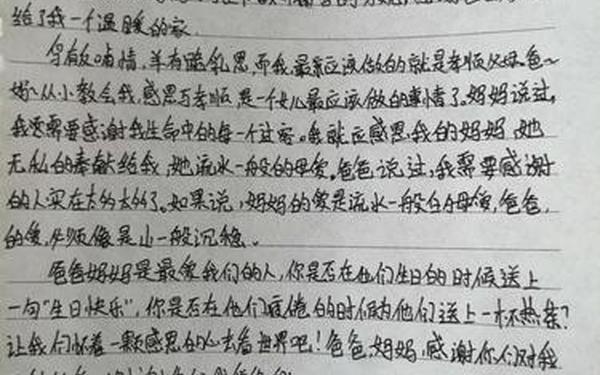 给了我一个温暖的家.
乌有反哺情,羊有跪乳恩,而我,最应该做的就是孝顺父母.爸~
妈~从小教会我,感恩与孝顺,是一个女儿最应该做的事情了.妈妈说过,
我还需要感谢我生命中的每一个过客。我就应感恩我的妈妈,她
无私的奉献给我,她流水一般的母爱。爸爸说过,我需要感谢
的人实在太多太多了。如果说,妈妈的爱是流水一般的母爱,爸爸,
的爱,必须像是山一般沉稳。
爸爸妈妈是最爱我们的人,你是否在他们生日的时候送上
一句"生日快乐",你是否在他们疲倦的时候为他们送上一杯热茶?
让我们怀着一颗感恩的心去看世界吧!爸爸,妈妈,感谢你们对我